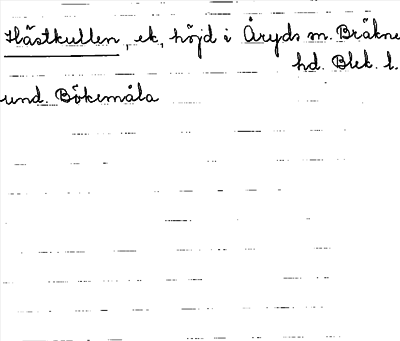 Hästkullen, ek, höjd i Åryds sn. Bräkne
hd. Blek. l.
und. Bökemåla